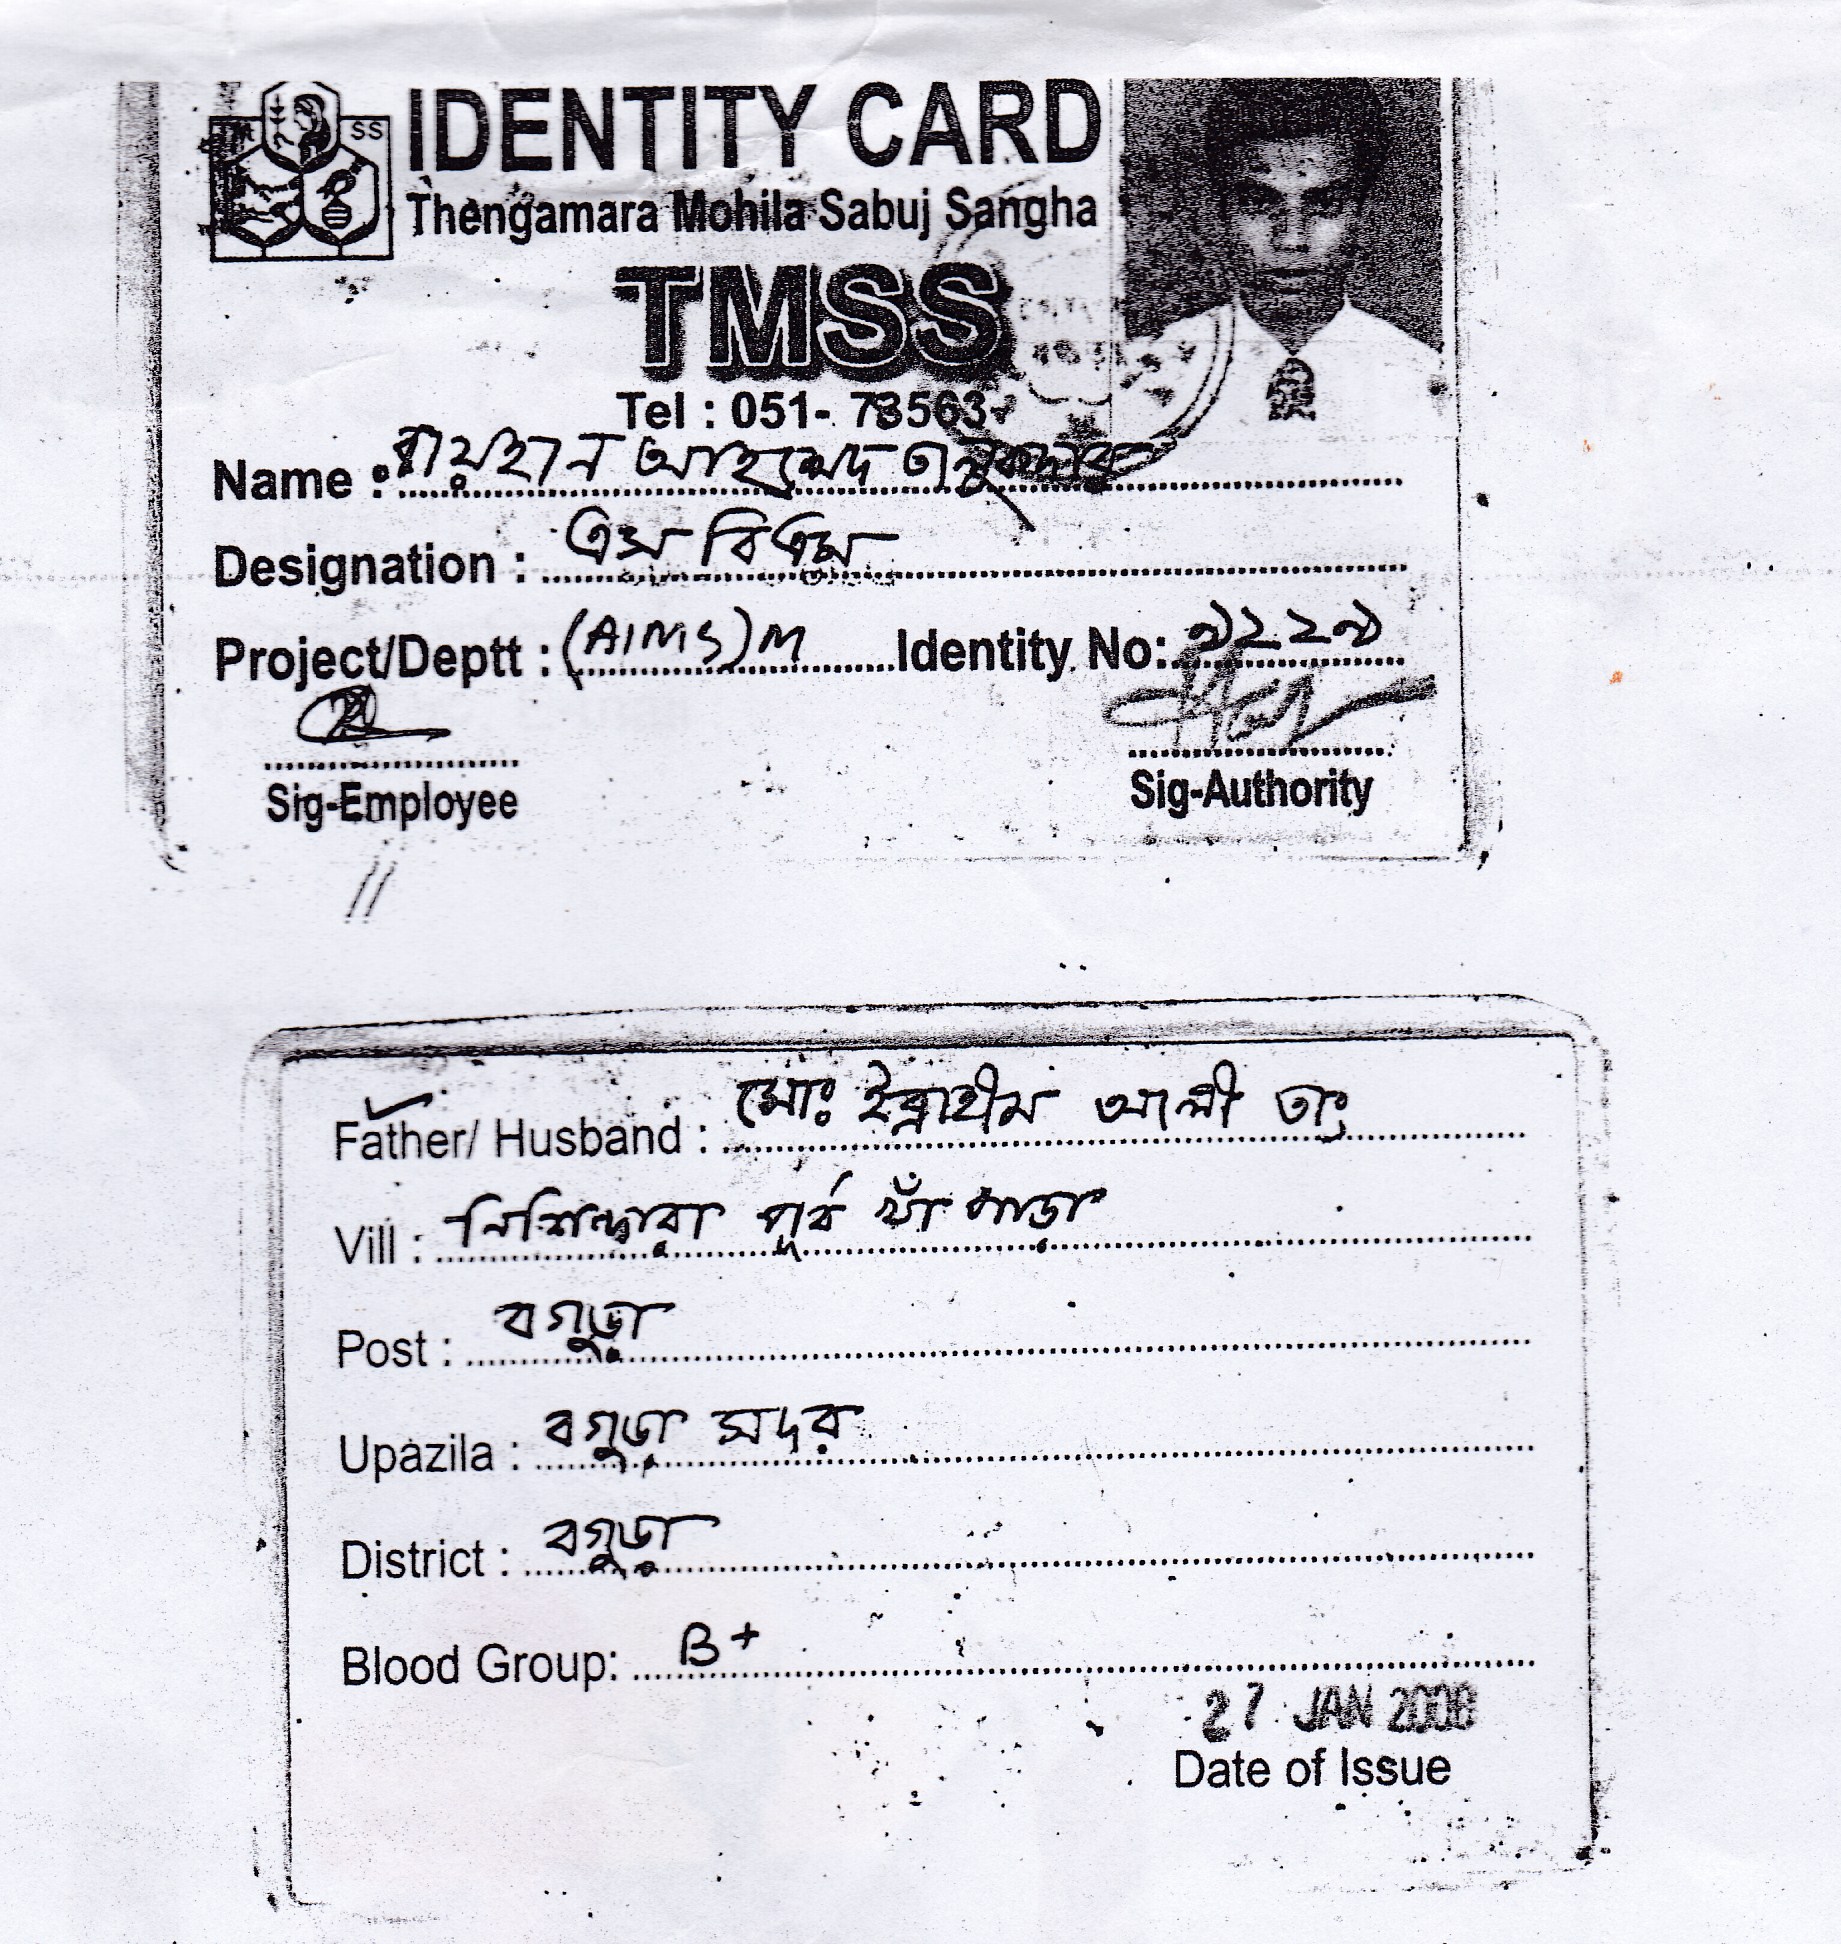 SS
IDENTITY CARD
Thengamara Mohila Sabuj Sangha
TMSS
Tel : 051- 73563
Name : রায়হান আহম্মেদ তালুকদার
Designation : এস বিএম
Project/Deptt : (AIMS)M Identity No: ৭১২২৭
Sig-Employee Sig-Authority
Father/ Husband : মোঃ ইব্রাহীম আলী তাং
Vill : নিশিন্দারা পূর্ব খাঁ পাড়া
Post : বগুড়া
Upazila : বগুড়া সদর
District : বগুড়া
Blood Group: B+
27 JAN 2008
Date of Issue